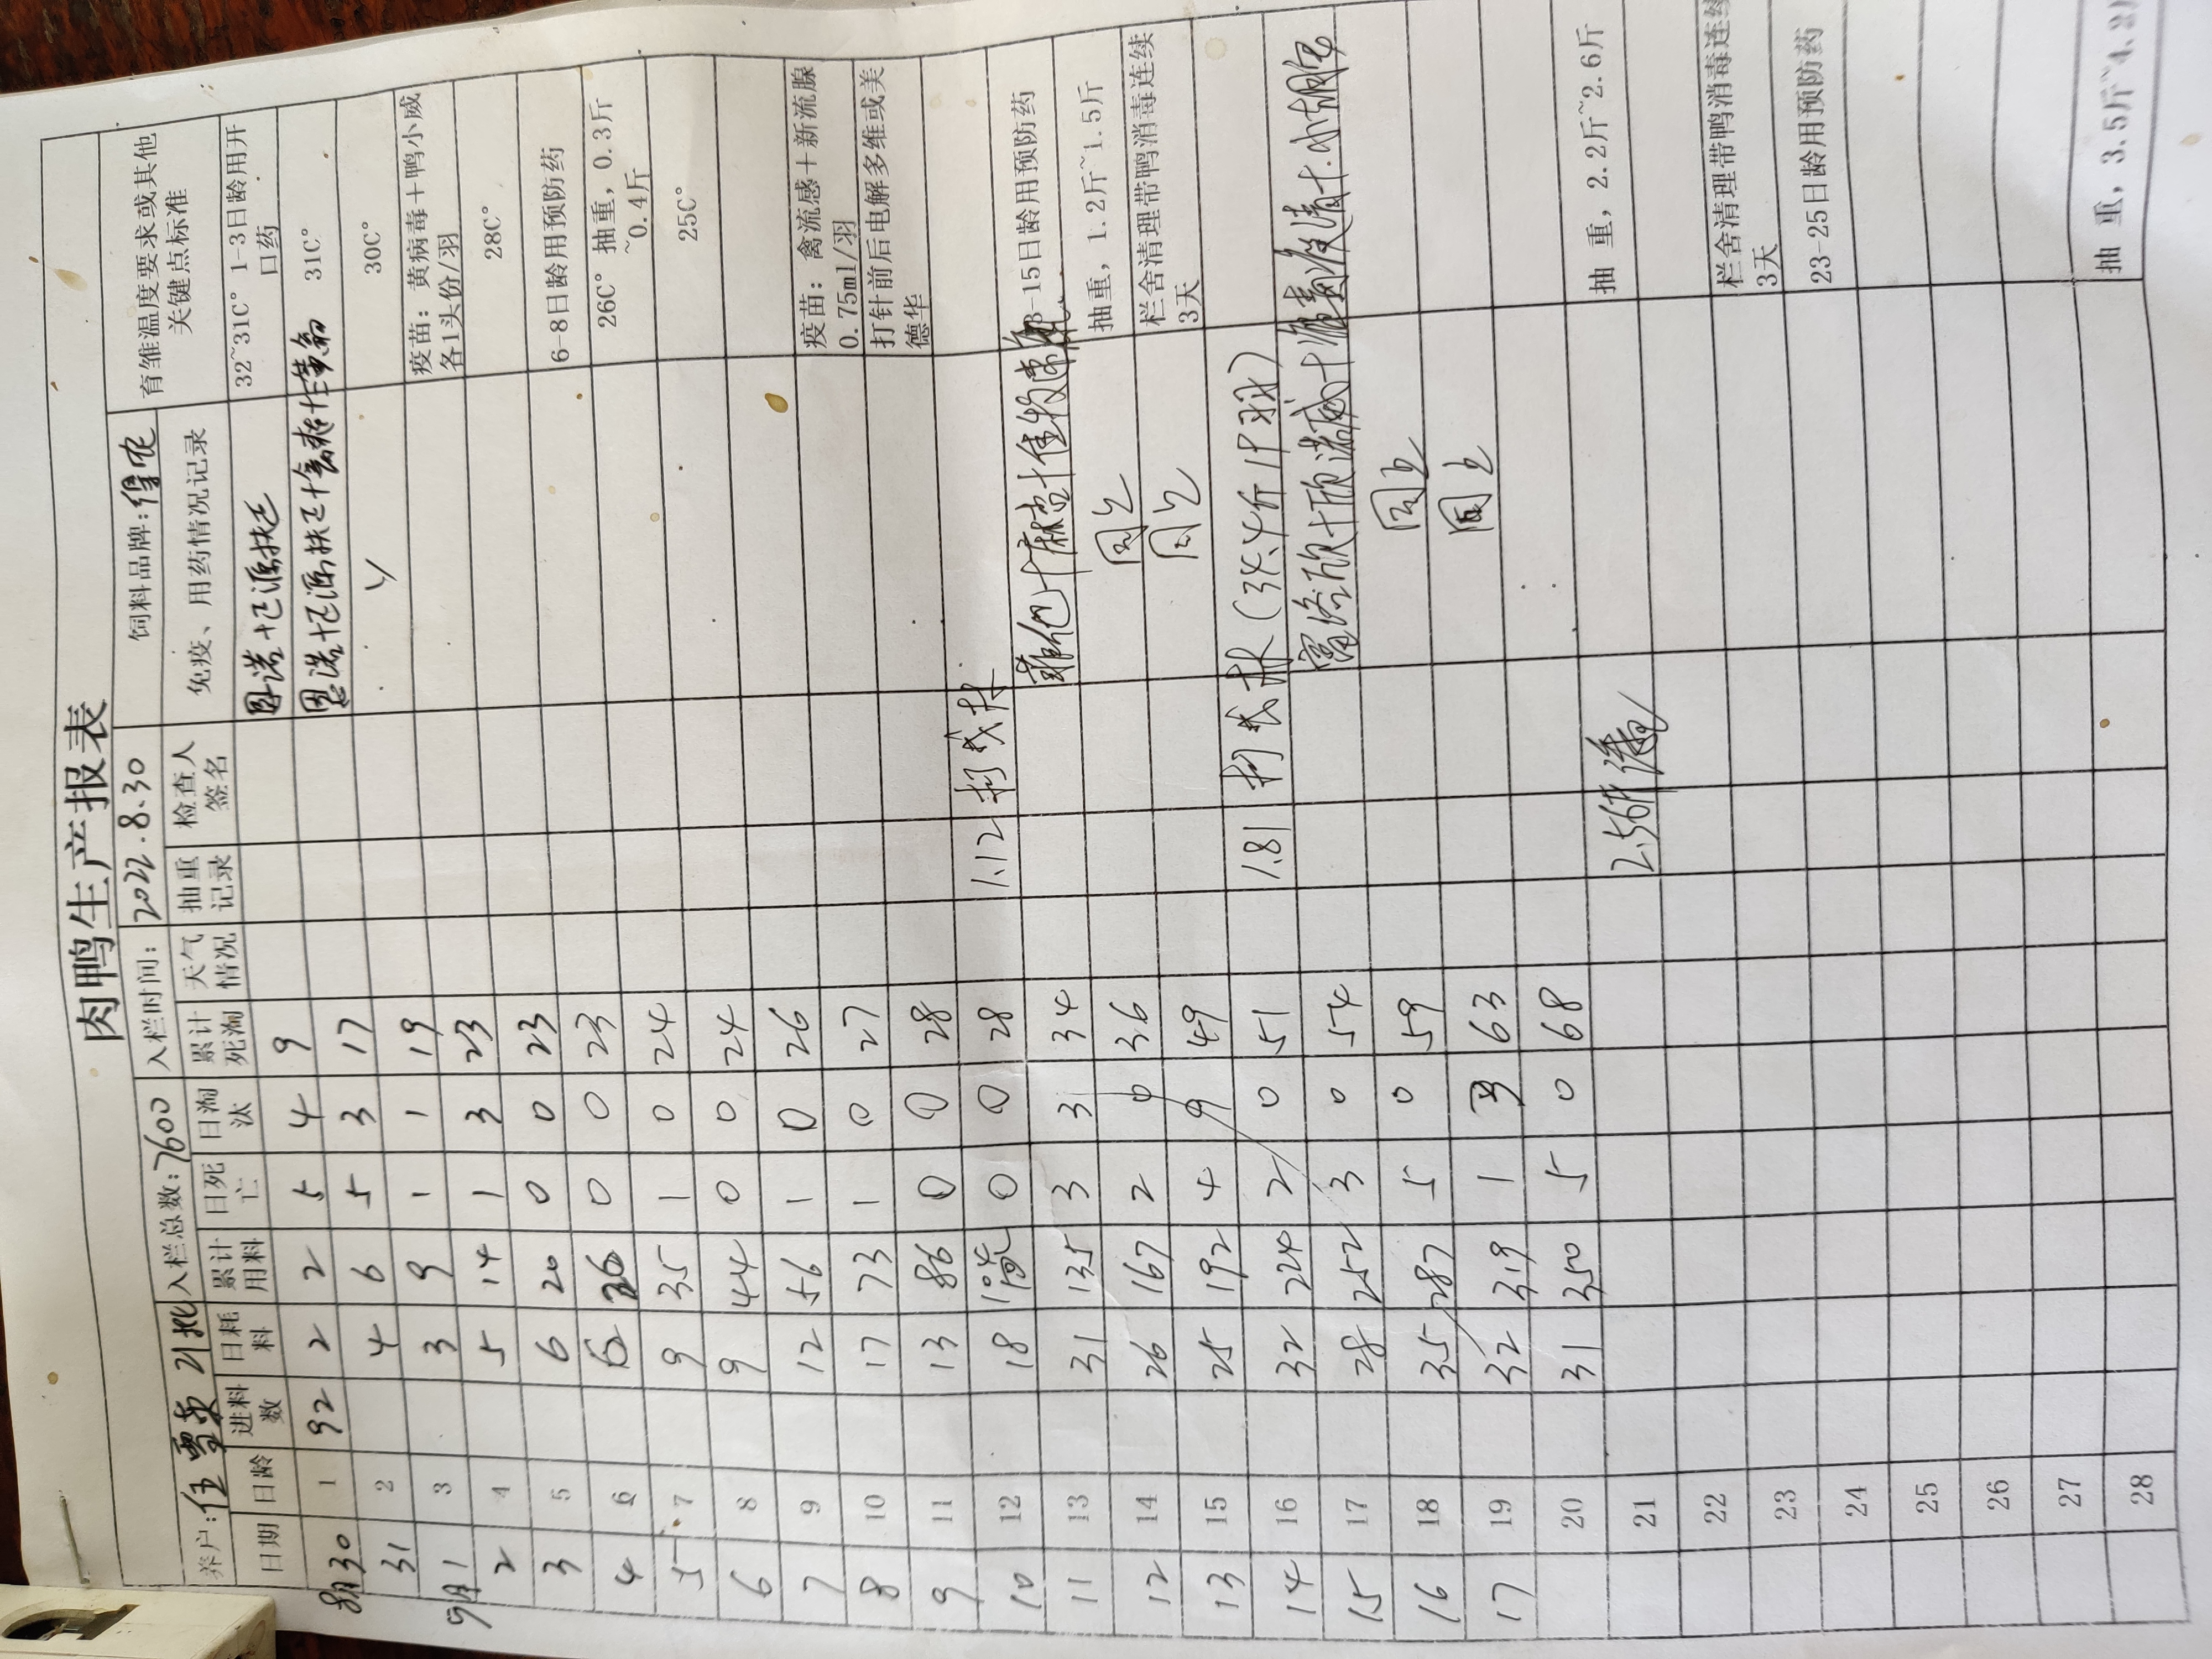 肉鸭生产报表
养户: 入栏总数:7600 入栏时间: 2022.8.30 饲料品牌:
日期 日龄 进料数 日耗料 累计用料 日死亡 日淘汰 累计死淘 天气情况 抽重记录 检查人签名 免疫、用药情况记录 育雏温度要求或其他关键点标准
8月30 1 92 2 2 5 4 9 32~31C° 1-3日龄用开口药
31 2 4 6 5 3 17 31C°
9月1 3 3 9 1 1 19 30C°
2 4 5 14 1 3 23 疫苗: 黄病毒+鸭小威各1头份/羽
3 5 6 20 0 0 23 28C°
4 6 6 26 0 0 23 6-8日龄用预防药
5 7 9 35 1 0 24 26C° 抽重, 0.3斤~0.4斤
6 8 9 44 0 0 24 25C°
7 9 12 56 1 0 26
8 10 17 73 1 0 27 疫苗: 禽流感+新流腺0.75ml/羽
9 11 13 86 0 0 28 打针前后电解多维或美德华
10 12 18 0 0 28 1.12
11 13 31 135 3 3 34 13-15日龄用预防药
12 14 26 167 2 0 36 同上 抽重, 1.2斤~1.5斤
13 15 25 192 4 9 49 同上 栏舍清理带鸭消毒连续3天
14 16 32 224 2 0 51 1.81
15 17 28 252 3 0 54
16 18 35 287 5 0 59 同上
17 19 32 319 1 3 63 同上
20 31 350 5 0 68
21 2.56斤 抽 重, 2.2斤~2.6斤
22
23 栏舍清理带鸭消毒连续3天
24 23-25日龄用预防药
25
26
27
28 抽 重, 3.5斤~4.2